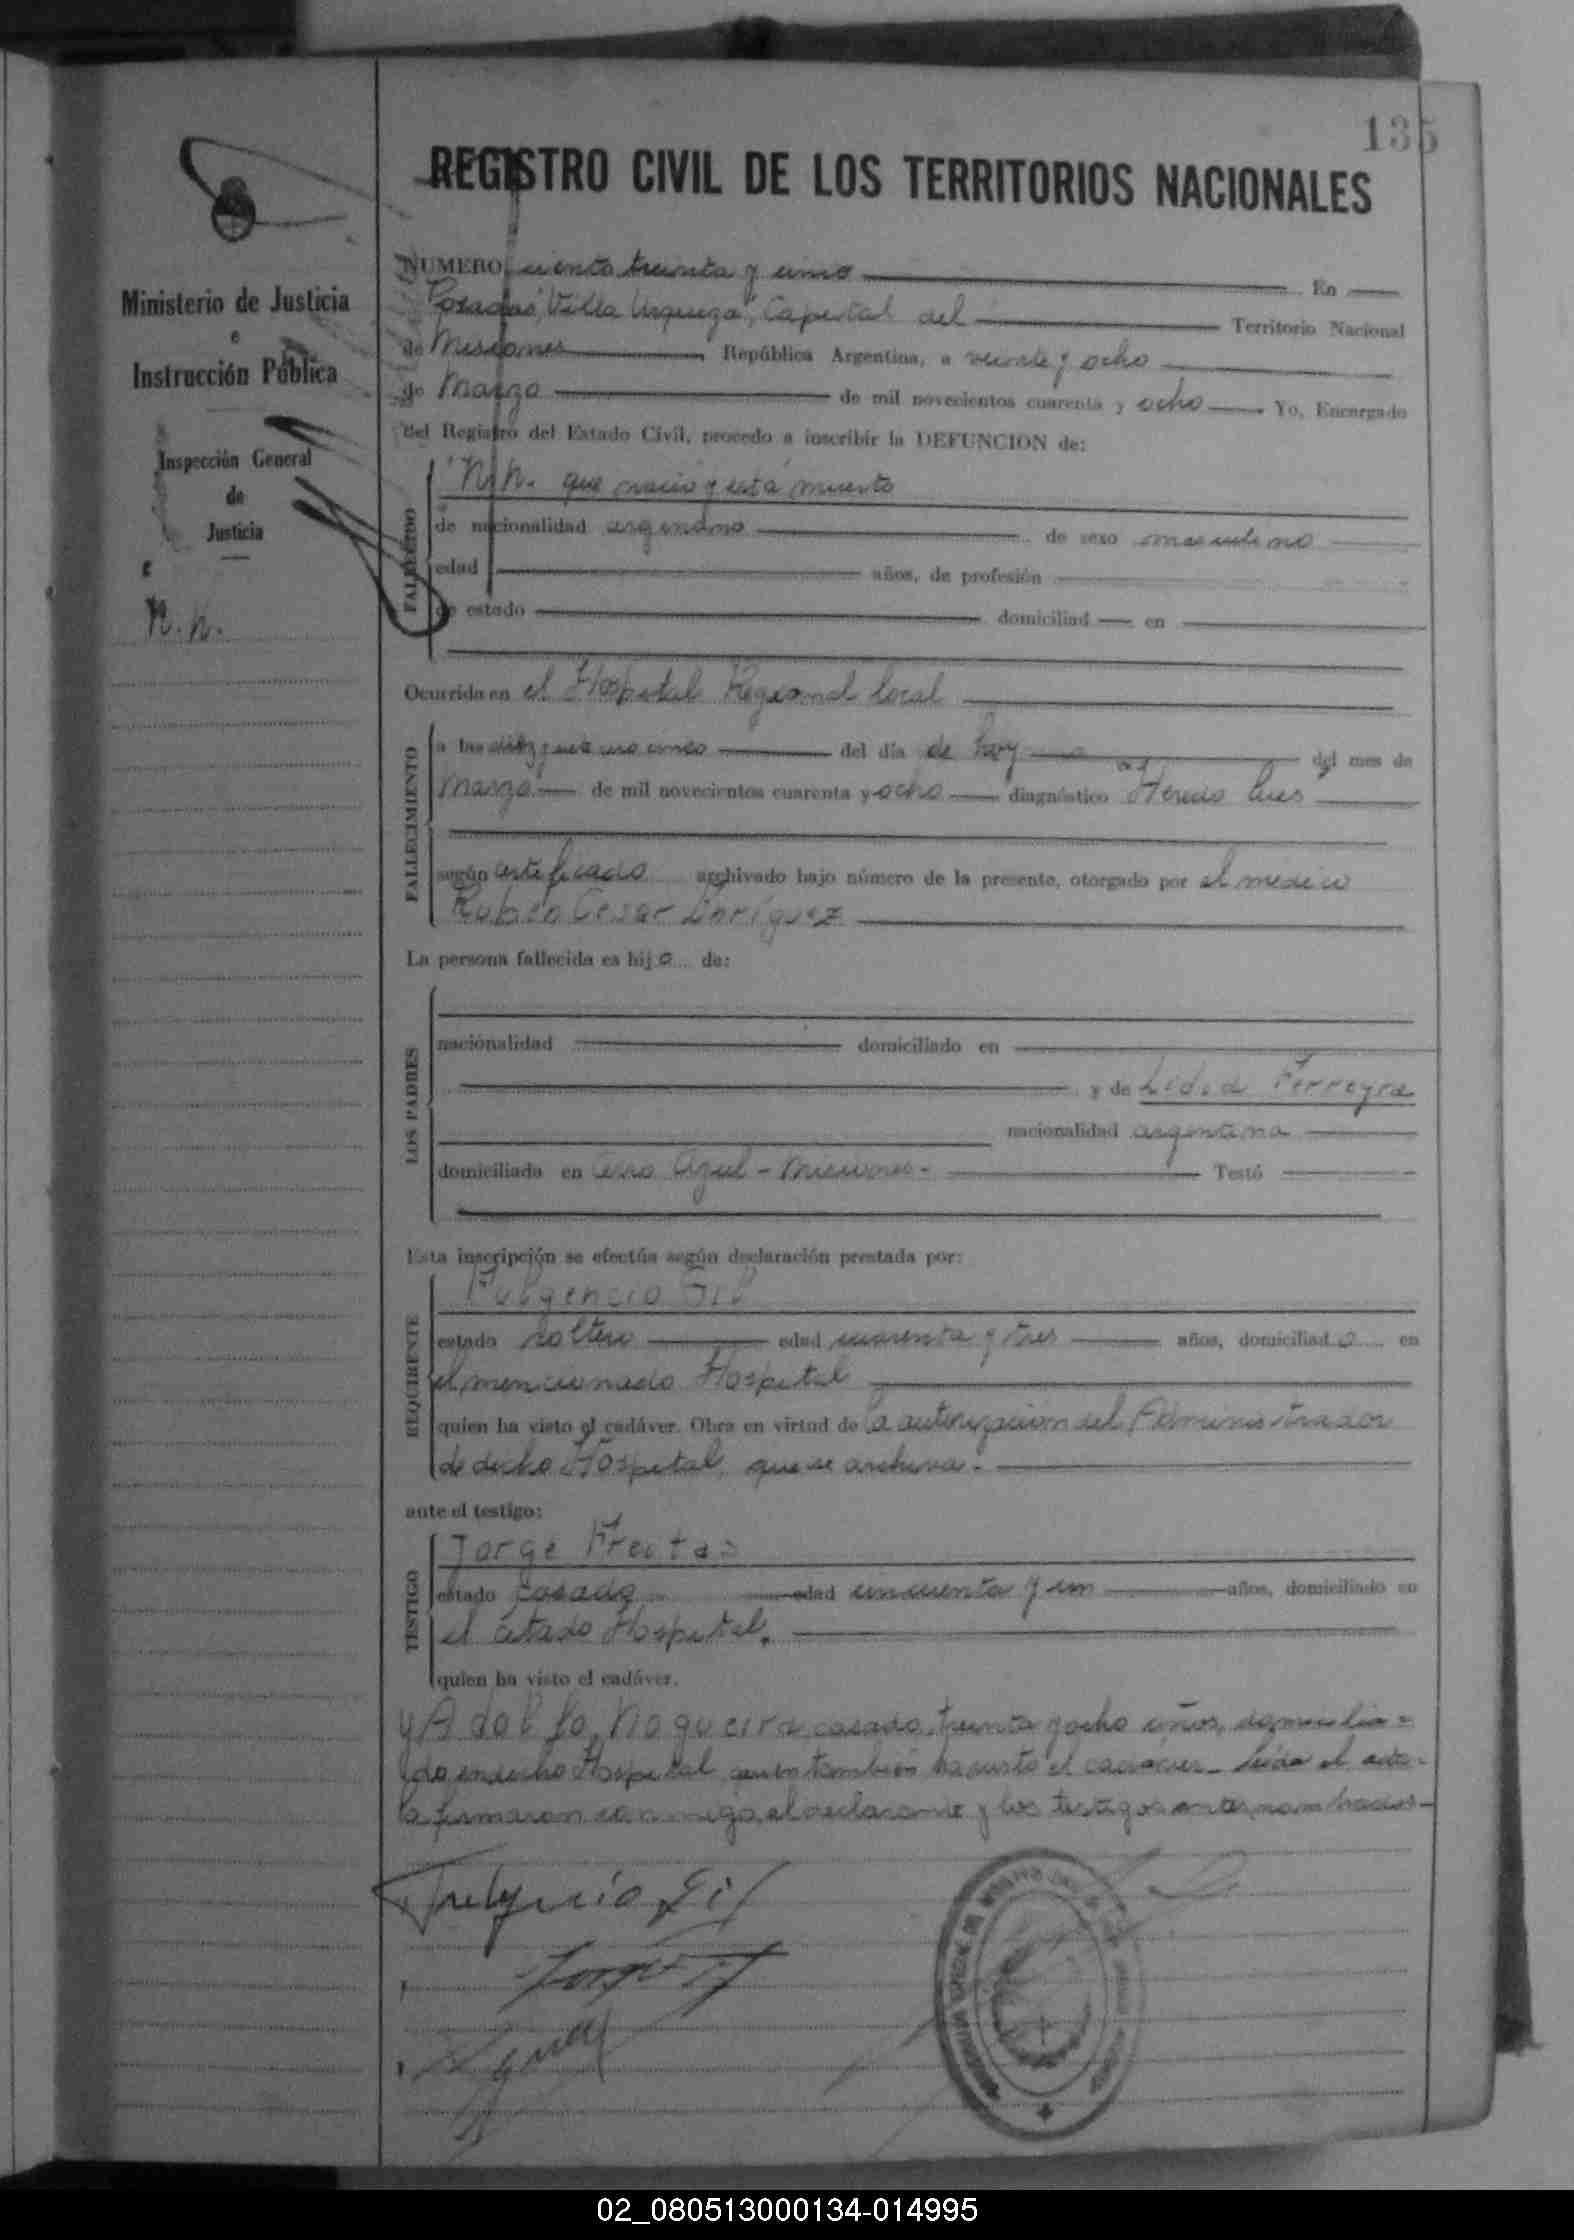 135
REGISTRO CIVIL DE LOS TERRITORIOS NACIONALES
Ministerio de Justicia
e
Instrucción Pública
Inspección General
de
Justicia
N.N.
NUMERO ciento treinta y uno En
Posadas, Villa Urquiza, Capital del Territorio Nacional
de Misiones República Argentina, a veinte y ocho
de Marzo de mil novecientos cuarenta y ocho Yo, Encargado
del Registro del Estado Civil, procedo a inscribir la DEFUNCION de:
FALLECIDO
N.N. que nació y está muerto
de nacionalidad argentino de sexo masculino
edad años, de profesión
de estado domiciliad en
Ocurrida en el Hospital Regional local
FALLECIMIENTO
a las diez y cinco del día de hoy del mes de
Marzo de mil novecientos cuarenta y ocho diagnóstico Heredo lues
según certificado archivado bajo número de la presente, otorgado por el médico
Ruben Cesar
La persona fallecida es hijo de:
LOS PADRES
nacionalidad domiciliado en
y de Lidia Ferreyra
nacionalidad argentina
domiciliada en Cerro Azul - Misiones - Testó
Esta inscripción se efectúa según declaración prestada por:
REQUIRENTE
Fulgencio Gil
estado soltero edad cuarenta y tres años, domiciliado en
el mencionado Hospital
quien ha visto el cadáver. Obra en virtud de la autorización del Administrador
de dicho Hospital, que se archiva.-
ante el testigo:
TESTIGO
Jorge Freitas
estado casado edad cincuenta y un años, domiciliado en
el citado Hospital.
quien ha visto el cadáver.
y Adolfo Nogueira, casado, treinta y ocho años, domicilia=
do en dicho Hospital, quien también ha visto el cadáver.- Leída el acta-
la firmaron conmigo, el declarante y los testigos antes nombrados-
Fulgencio Gil
02_080513000134-014995